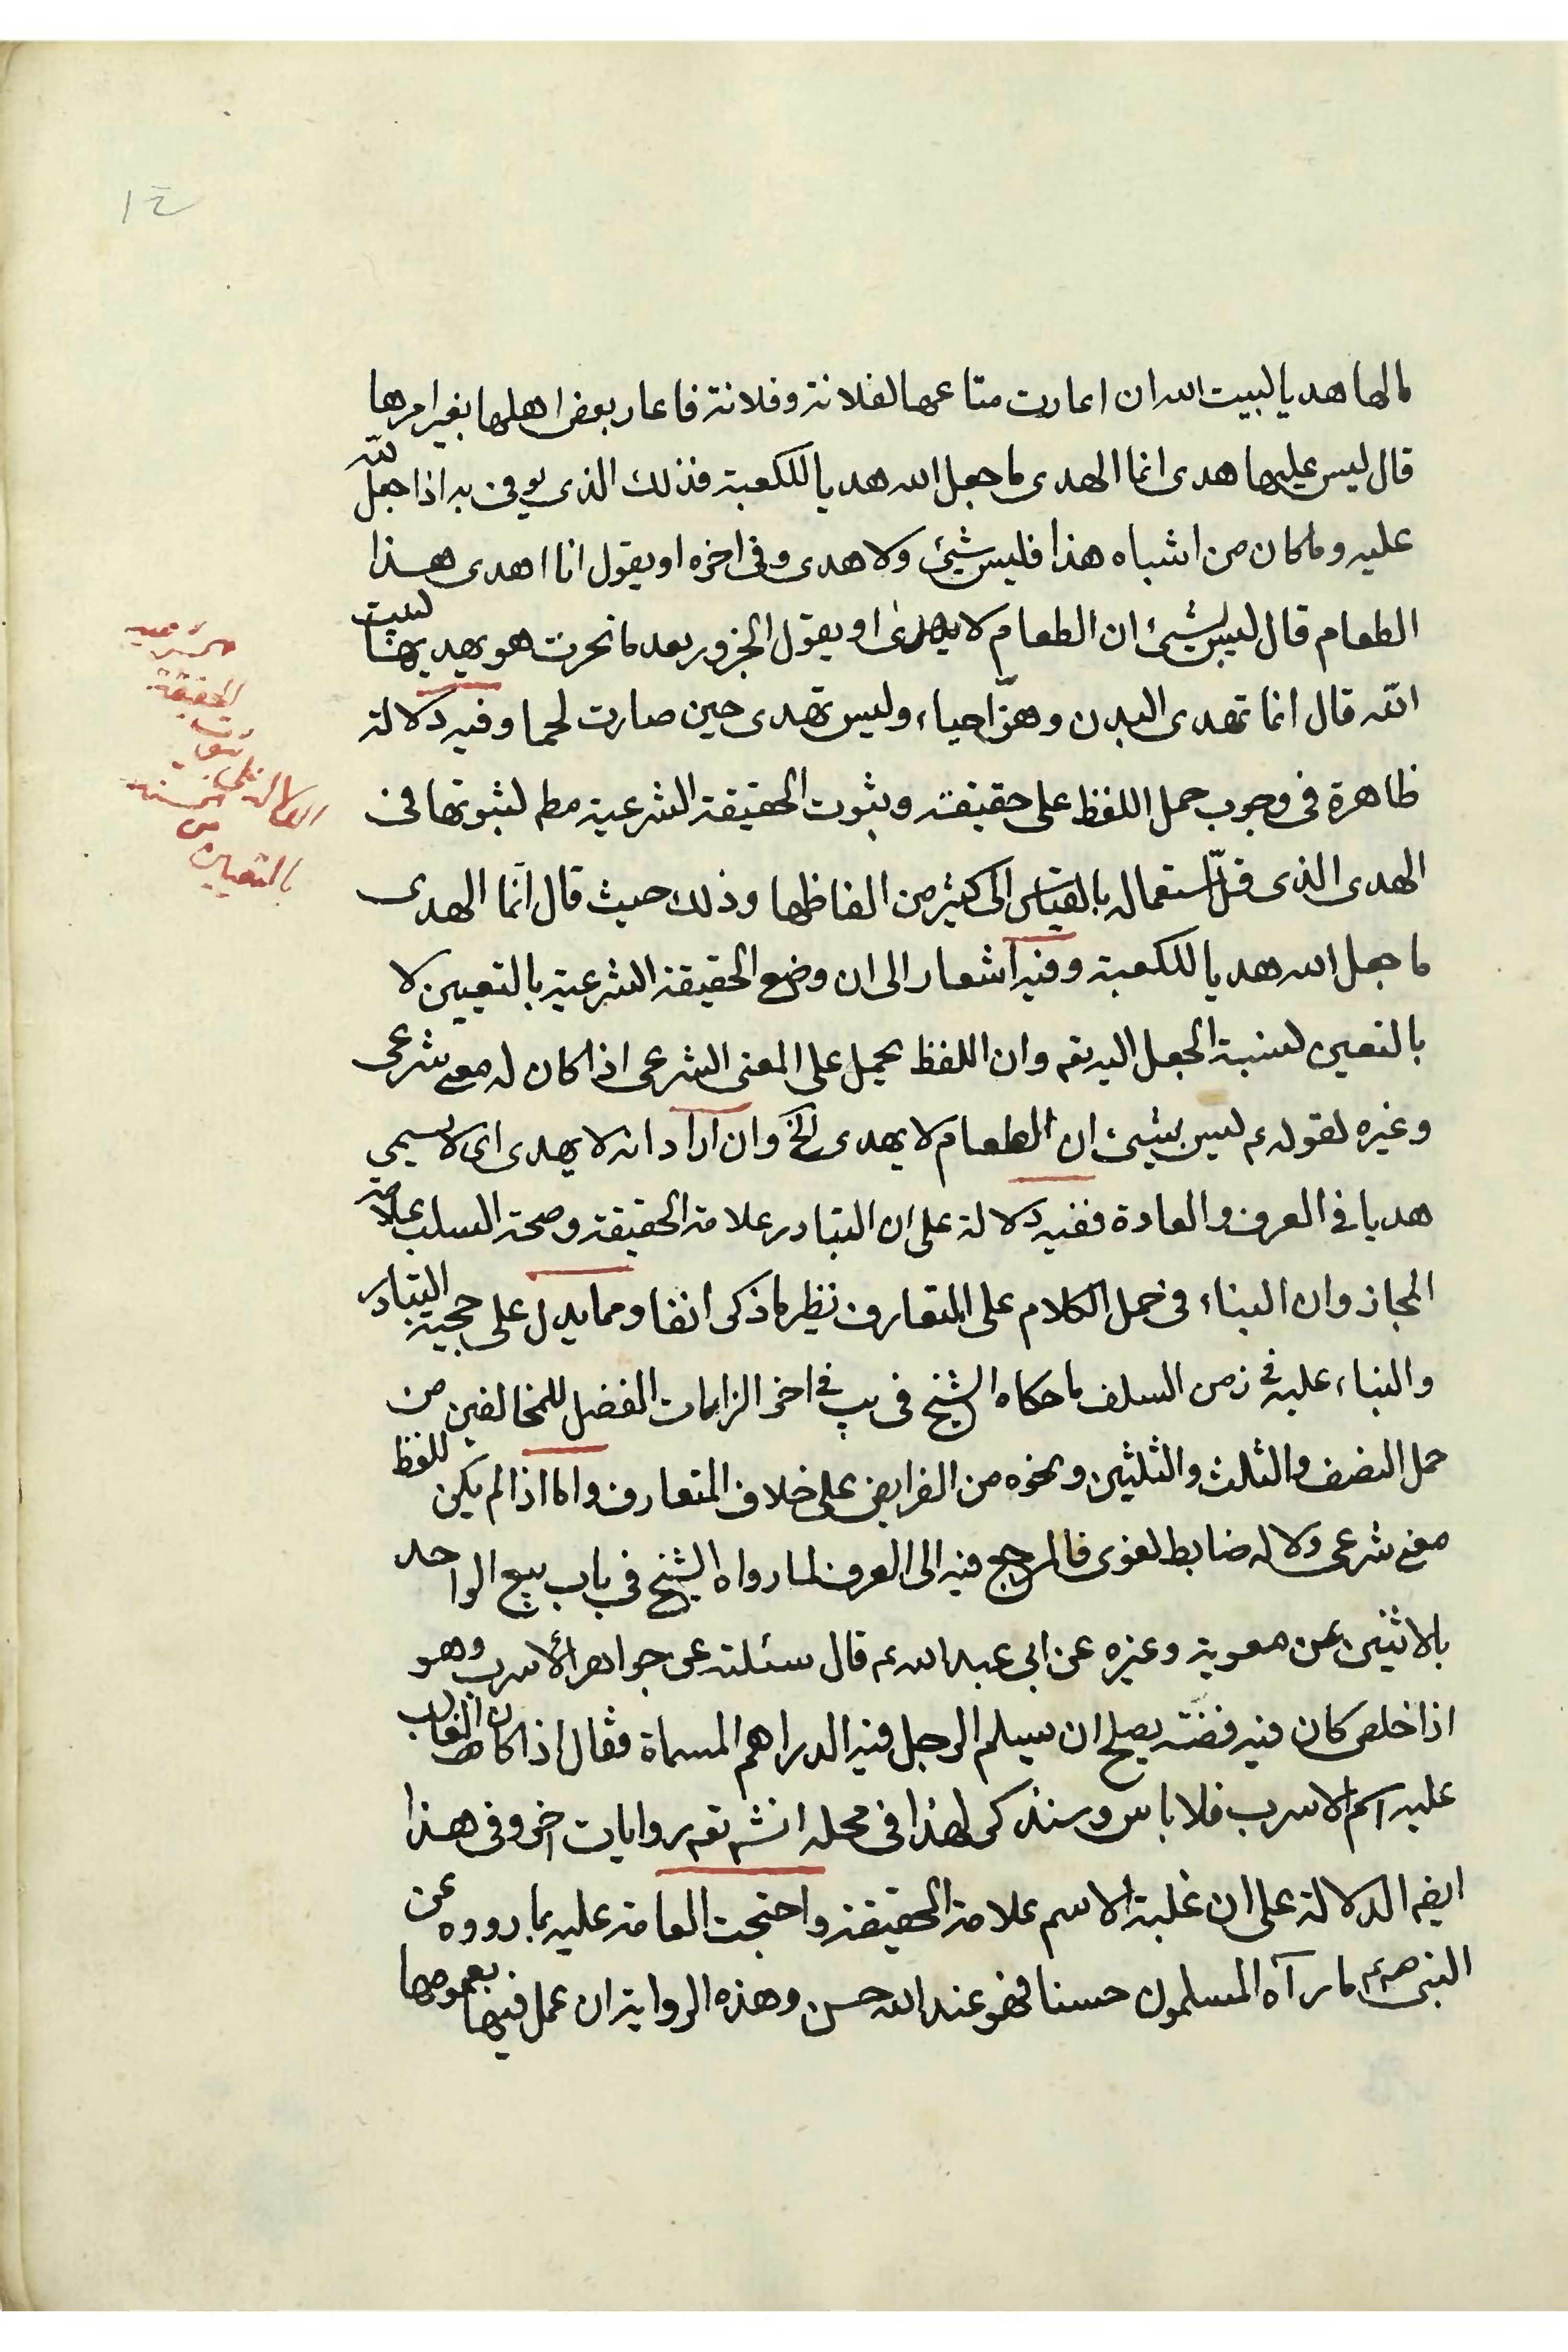 ١٤
مالها هديا لبيت الله ان اعارت متاعها لفلانة وفلانة فاعار بعض اهلها بغير امرها
قال ليس عليها هدى انما الهدى ما جعل الله هديا للكعبة فذلك الذى يوفى به اذا جعل لله
عليه وما كان من اشباه هذا فليس شيئ ولا هدى وفى اخره او يقول انا اهدى هذا
الطعام قال ليس بشيئ ان الطعام لا يهدى او يقول الجزور بعد ما نحرت هو يهديها لبيت
الله قال انما تهدى البدن وهنّ احياء وليس تهدى حين صارت لحما وفيه دلالة
ظاهرة فى وجوب حمل اللفظ على حقيقته وبثبوت الحقيقة الشرعية مطم لثبوتها فى
الهدى الذى قلّ استعماله بالقياس الى كثير من الفاظها وذلك حيث قال انما الهدى
ما جعل الله هديا للكعبة وفيه اشعار الى ان وضع الحقيقة الشرعية بالتعيين لا
بالتعين لنسبة الجعل اليه تعم وان اللفظ يحمل على المعنى الشرعى اذا كان له معنى شرعى
وغيره لقوله ع ليس بشيئ ان الطعام لا يهدى الخ وان اراد انه لا يهدى اى لا يسمى
هديا فى العرف والعادة ففيه دلالة على ان التبادر علامة الحقيقة وصحة السلب علامة
المجاز وان البناء فى حمل الكلام على المتعارف نظير ما ذكر انفا ومما يدل على حجية التبادر
والبناء عليه فى زمن السلف ما حكاه الشيخ فى يب فى اخر الزامات الفضل للمخالفين من
حمل النصف والثلث والثلثين ونحوه من الفرايض على خلاف المتعارف واما اذا لم يكن للفظ
معنى شرعى ولا له ضابط لغوى فالمرجع فيه الى العرف لما رواه الشيخ فى باب بيع الواحد
بالاثنين عن معوية وغيره عن ابى عبد الله ع قال سئلته عن جواهر الاسرب وهو
اذا خلص كان فيه فضة يصلح ان يسلم الرجل فيه الدراهم المسماة فقال اذا كان الغالب
عليه اسم الاسرب فلا باس وسنذكر لهذا فى محله انش تعم روايات اخر وفى هذا
ايضم الدلالة على ان غلبة الاسم علامة الحقيقة واحتجت العامة عليه بما رووه عن
النبى ص ما رآه المسلمون حسنا فهو عند الله حسن وهذه الرواية ان عمل فيها بعمومها
الحقيقة